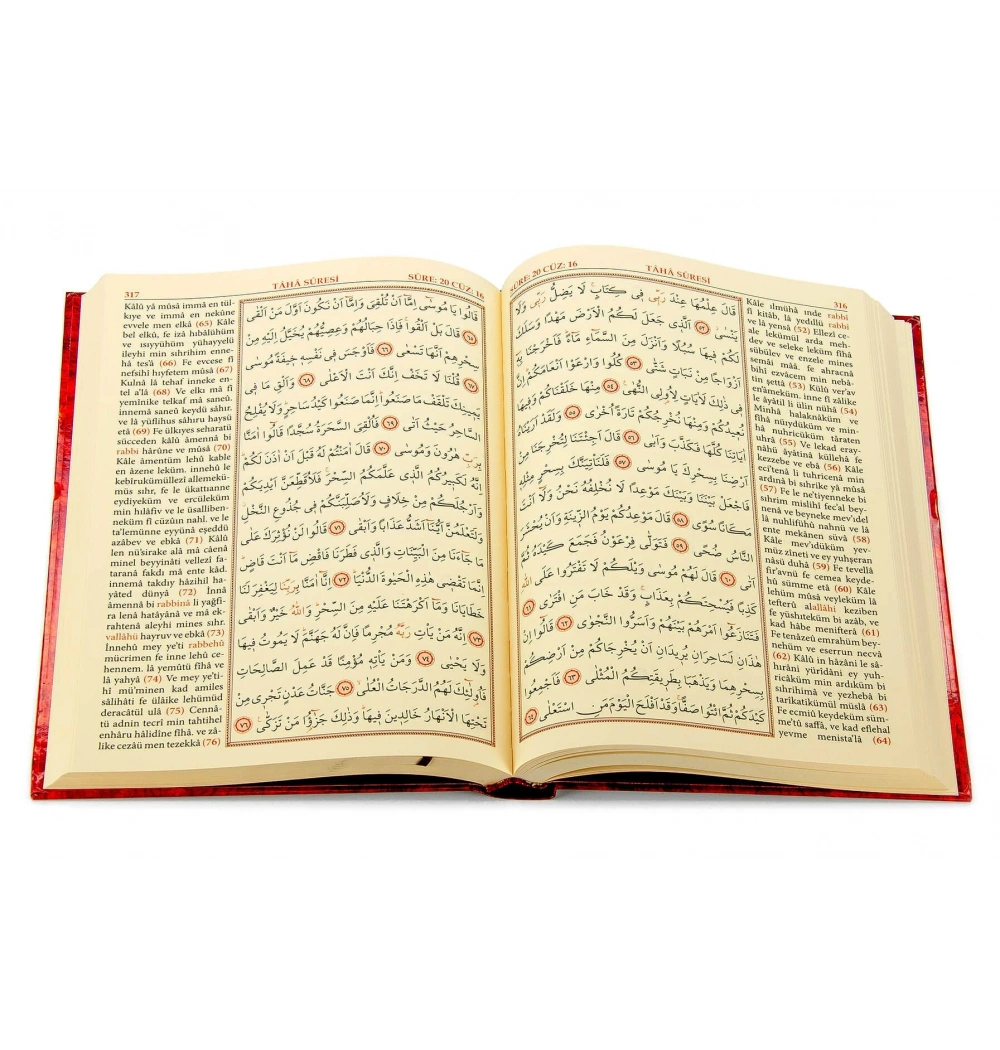 SÛRE: 20 CÜZ: 16 TÂHÂ SÛRESİ
قَالَ عِلْمُهَا عِنْدَ رَبّ۪ي ف۪ي كِتَابٍۚ لَا يَضِلُّ رَبّ۪ي وَلَا
يَنْسٰىۘ ﴿٥٢﴾ اَلَّذ۪ي جَعَلَ لَكُمُ الْاَرْضَ مَهْدًا وَسَلَكَ
لَكُمْ ف۪يهَا سُبُلًا وَاَنْزَلَ مِنَ السَّمَٓاءِ مَٓاءًۜ فَاَخْرَجْنَا بِه۪ٓ
اَزْوَاجًا مِنْ نَبَاتٍ شَتّٰى ﴿٥٣﴾ كُلُوا وَارْعَوْا اَنْعَامَكُمْۜ اِنَّ
ف۪ي ذٰلِكَ لَاٰيَاتٍ لِاُو۬لِي النُّهٰى۟ ﴿٥٤﴾ مِنْهَا خَلَقْنَاكُمْ وَف۪يهَا
نُع۪يدُكُمْ وَمِنْهَا نُخْرِجُكُمْ تَارَةً اُخْرٰى ﴿٥٥﴾ وَلَقَدْ اَرَيْنَاهُ
اٰيَاتِنَا كُلَّهَا فَكَذَّبَ وَاَبٰى ﴿٥٦﴾ قَالَ اَجِئْتَنَا لِتُخْرِجَنَا مِنْ
اَرْضِنَا بِسِحْرِكَ يَا مُوسٰى ﴿٥٧﴾ فَلَنَأْتِيَنَّكَ بِسِحْرٍ مِثْلِه۪
فَاجْعَلْ بَيْنَنَا وَبَيْنَكَ مَوْعِدًا لَا نُخْلِفُهُ نَحْنُ وَلَٓا اَنْتَ
مَكَانًا سُوًى ﴿٥٨﴾ قَالَ مَوْعِدُكُمْ يَوْمُ الزّ۪ينَةِ وَاَنْ يُحْشَرَ
النَّاسُ ضُحًى ﴿٥٩﴾ فَتَوَلّٰى فِرْعَوْنُ فَجَمَعَ كَيْدَهُ ثُمَّ
اَتٰى ﴿٦٠﴾ قَالَ لَهُمْ مُوسٰى وَيْلَكُمْ لَا تَفْتَرُوا عَلَى اللّٰهِ
كَذِبًا فَيُسْحِتَكُمْ بِعَذَابٍۚ وَقَدْ خَابَ مَنِ افْتَرٰى ﴿٦١﴾
فَتَنَازَعُٓوا اَمْرَهُمْ بَيْنَهُمْ وَاَسَرُّوا النَّجْوٰى ﴿٦٢﴾ قَالُٓوا اِنْ
هٰذَانِ لَسَاحِرَانِ يُر۪يدَانِ اَنْ يُخْرِجَاكُمْ مِنْ اَرْضِكُمْ
بِسِحْرِهِمَا وَيَذْهَبَا بِطَر۪يقَتِكُمُ الْمُثْلٰى ﴿٦٣﴾ فَاَجْمِعُوا
كَيْدَكُمْ ثُمَّ ائْتُوا صَفًّاۚ وَقَدْ اَفْلَحَ الْيَوْمَ مَنِ اسْتَعْلٰى ﴿٦٤﴾
316
Kâle ılmühâ ınde rabbi
fî kitâb, lâ yedıllü rabbi
ve lâ yensâ (52) Ellezi ce-
ale lekümül arda meh-
dev ve seleke leküm fîhâ
sübülev ve enzele mines
semâi mâä. fe ahracnâ
bihî ezvâcem min nebâ-
tin şettâ (53) Külû ver'av
en'âmeküm. inne fî zâlike
le âyâtil li ülin nühâ (54)
Minhâ halaknâküm ve
fîhâ nüıydüküm ve min-
hâ nuhricüküm târaten
uhrâ (55) Ve lekad eray-
nâhü âyâtinâ küllehâ fe
kezzebe ve ebâ (56) Kâle
eci'tenâ li tuhricenâ min
ardınâ bi sıhrike yâ mûsâ
(57) Fe le ne'tiyenneke bi
sıhrim mislihî fec'al bey-
nenâ ve beyneke mev'ıdel
lâ nuhlifühû nahnü ve lâ
ente mekânen süvâ (58)
Kâle mev'ıdüküm yev-
müz zîneti ve ey yuhşeran
nâsü duhâ (59) Fe tevellâ
fir'avnü fe cemea keyde-
hû sümme etâ (60) Kâle
lehüm mûsâ veyleküm lâ
tefterû alallâhi keziben
fe yüshıteküm bi azâb, ve
kad hâbe menifterâ (61)
Fe tenâzeû emrahüm bey-
nehüm ve eserrun necvâ
(62) Kâlû in hâzâni le sâ-
hırâni yürîdâni ey yuh-
ricâküm min ardıküm bi
sıhrihimâ ve yezhebâ bi
tarikatikümül müslâ (63)
Fe ecmiû keydeküm süm-
me'tû saffâ, ve kad eflehal
yevme menista'lâ (64)
317 TÂHÂ SÛRESİ SÛRE: 20 CÜZ: 16
قَالُوا يَا مُوسٰٓى اِمَّٓا اَنْ تُلْقِيَ وَاِمَّٓا اَنْ نَكُونَ اَوَّلَ مَنْ اَلْقٰى
﴿٦٥﴾ قَالَ بَلْ اَلْقُواۚ فَاِذَا حِبَالُهُمْ وَعِصِيُّهُمْ يُخَيَّلُ اِلَيْهِ مِنْ
سِحْرِهِمْ اَنَّهَا تَسْعٰى ﴿٦٦﴾ فَاَوْجَسَ ف۪ي نَفْسِه۪ خ۪يفَةً مُوسٰى
﴿٦٧﴾ قُلْنَا لَا تَخَفْ اِنَّكَ اَنْتَ الْاَعْلٰى ﴿٦٨﴾ وَاَلْقِ مَا ف۪ي
يَم۪ينِكَ تَلْقَفْ مَا صَنَعُواۜ اِنَّمَا صَنَعُوا كَيْدُ سَاحِرٍۜ وَلَا يُفْلِحُ
السَّاحِرُ حَيْثُ اَتٰى ﴿٦٩﴾ فَاُلْقِيَ السَّحَرَةُ سُجَّدًا قَالُٓوا اٰمَنَّا
بِرَبِّ هٰرُونَ وَمُوسٰى ﴿٧٠﴾ قَالَ اٰمَنْتُمْ لَهُ قَبْلَ اَنْ اٰذَنَ لَكُمْۜ
اِنَّهُ لَكَب۪يرُكُمُ الَّذ۪ي عَلَّمَكُمُ السِّحْرَۚ فَلَاُقَطِّعَنَّ اَيْدِيَكُمْ
وَاَرْجُلَكُمْ مِنْ خِلَافٍ وَلَاُصَلِّبَنَّكُمْ ف۪ي جُذُوعِ النَّخْلِۘ
وَلَتَعْلَمُنَّ اَيُّنَٓا اَشَدُّ عَذَابًا وَاَبْقٰى ﴿٧١﴾ قَالُوا لَنْ نُؤْثِرَكَ عَلٰى
مَا جَٓاءَنَا مِنَ الْبَيِّنَاتِ وَالَّذ۪ي فَطَرَنَا فَاقْضِ مَٓا اَنْتَ قَاضٍۜ
اِنَّمَا تَقْض۪ي هٰذِهِ الْحَيٰوةَ الدُّنْيَاۜ ﴿٧٢﴾ اِنَّٓا اٰمَنَّا بِرَبِّنَا لِيَغْفِرَ لَنَا
خَطَايَانَا وَمَٓا اَكْرَهْتَنَا عَلَيْهِ مِنَ السِّحْرِۜ وَاللّٰهُ خَيْرٌ وَاَبْقٰى
﴿٧٣﴾ اِنَّهُ مَنْ يَأْتِ رَبَّهُ مُجْرِمًا فَاِنَّ لَهُ جَهَنَّمَۜ لَا يَمُوتُ ف۪يهَا
وَلَا يَحْيٰى ﴿٧٤﴾ وَمَنْ يَأْتِه۪ مُؤْمِنًا قَدْ عَمِلَ الصَّالِحَاتِ
فَاُو۬لٰٓئِكَ لَهُمُ الدَّرَجَاتُ الْعُلٰىۙ ﴿٧٥﴾ جَنَّاتُ عَدْنٍ تَجْر۪ي مِنْ
تَحْتِهَا الْاَنْهَارُ خَالِد۪ينَ ف۪يهَاۜ وَذٰلِكَ جَزٰٓؤُ۬ا مَنْ تَزَكّٰى۟ ﴿٧٦﴾
Kâlû yâ mûsâ immâ en tül-
kıye ve immâ en nekûne
evvele men elkâ (65) Kâle
bel elkû, fe izâ hıbâlühüm
ve ısıyyühüm yühayyelü
ileyhi min sıhrihim enne-
hâ tes'â (66) Fe evcese fî
nefsihî hıyfetem mûsâ (67)
Kulnâ lâ tehaf inneke en-
tel a'lâ (68) Ve elkı mâ fî
yemînike telkaf mâ saneû,
innemâ saneû keydü sâhır.
ve lâ yüflihus sâhıru haysü
etâ (69) Fe ülkıyes seharatü
sücceden kâlû âmennâ bi
rabbi hârûne ve mûsâ (70)
Kâle âmentüm lehû kable
en âzene leküm. innehû le
kebîrukümüllezî allemekü-
müs sıhr, fe le ükattıanne
eydiyeküm ve ercüleküm
min hılâfiv ve le üsalliben-
neküm fî cüzûın nahl. ve le
ta'lemünne eyyünâ eşeddü
azâbev ve ebkâ (71) Kâlû
len nü'sirake alâ mâ câenâ
minel beyyinâti vellezî fa-
taranâ fakdı mâ ente kâd.
innemâ takdıy hâzihil ha-
yâted dünyâ (72) İnnâ
âmennâ bi rabbinâ li yağfi-
ra lenâ hatâyânâ ve mâ ek-
rahtenâ aleyhi mines sıhr.
vallâhü hayruv ve ebkâ (73)
İnnehû mey ye'ti rabbehû
mücrimen fe inne lehû ce-
hennem. lâ yemûtü fîhâ ve
lâ yahyâ (74) Ve mey ye'ti-
hî mü'minen kad amiles
sâlihâti fe ülâike lehümüd
deracâtül ulâ (75) Cennâ-
tü adnin tecrî min tahtihel
enhâru hâlidîne fîhâ. ve zâ-
like cezâü men tezekkâ (76)